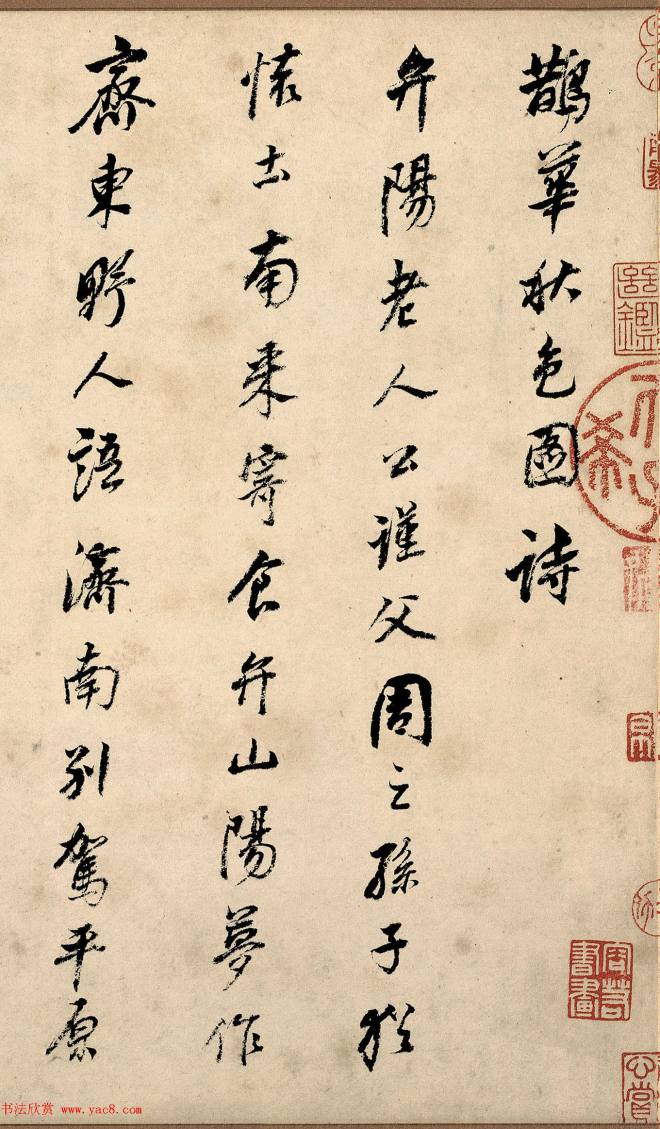 鵲華秋色圖詩
弁陽老人公謹父周之孫子猶
懷土南來寄食弁山陽夢作
齊東野人語濟南別駕平原
书法欣赏 www.yac8.com